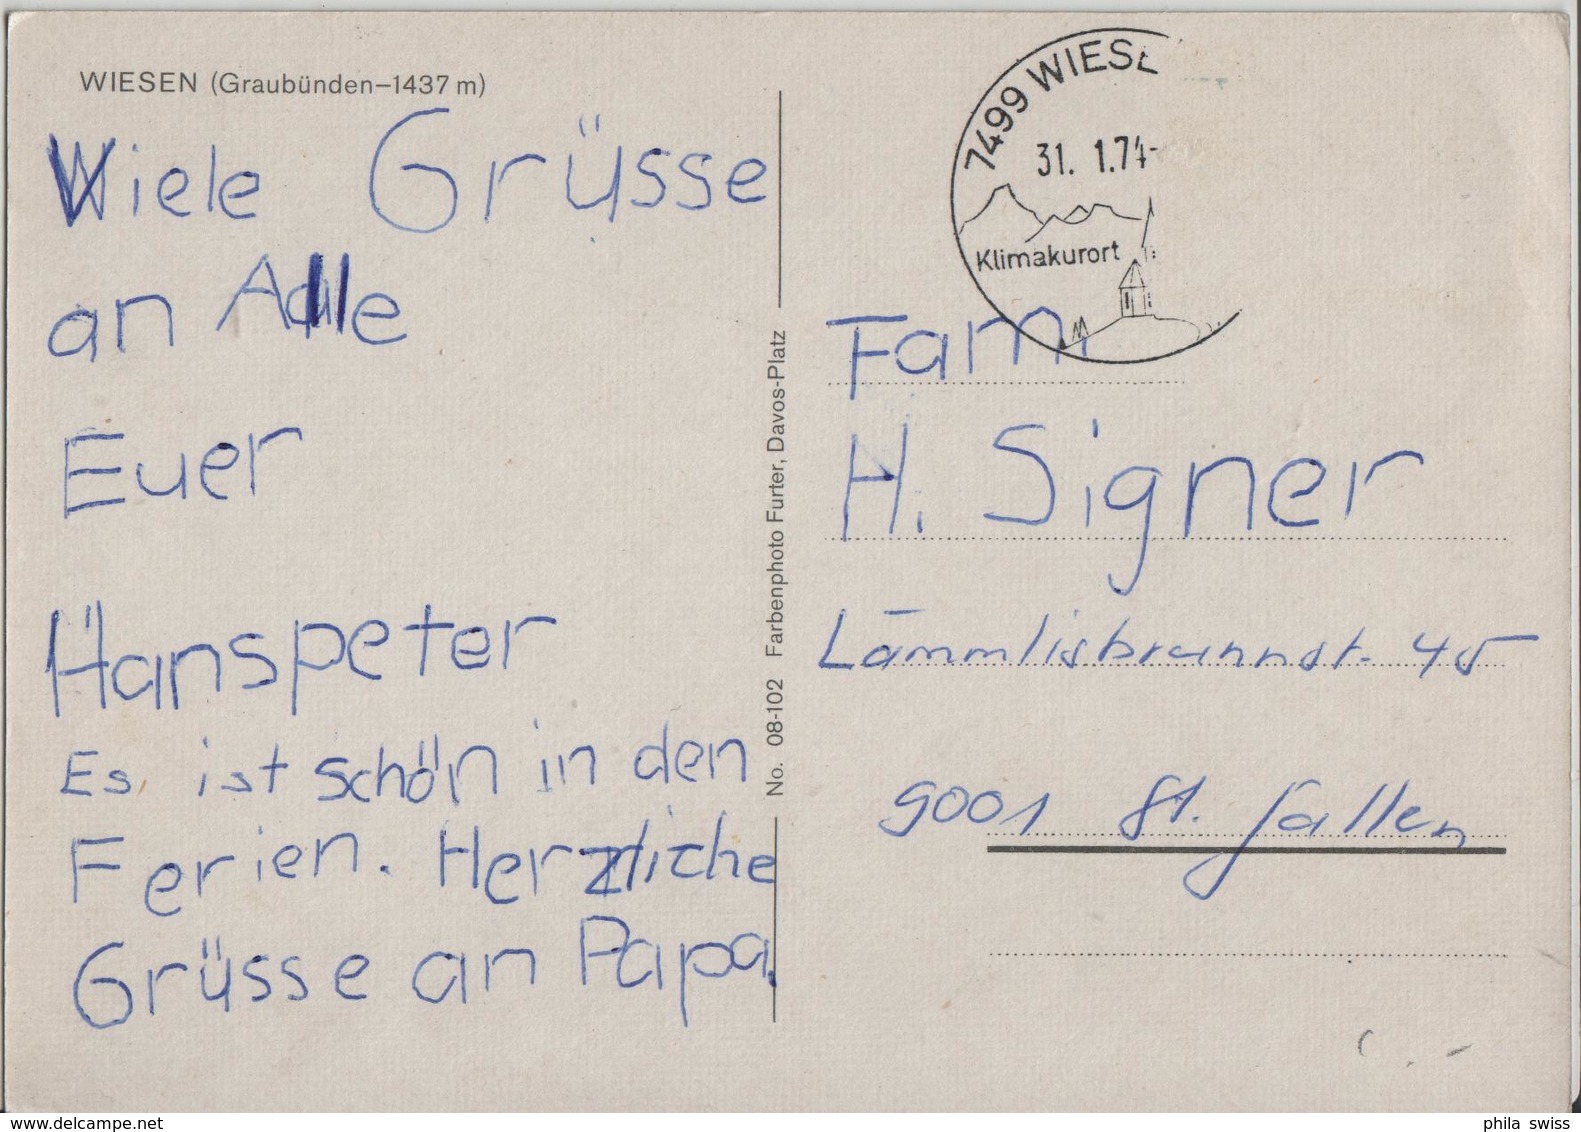 WIESEN (Graubünden–1437 m)
Viele Grüsse
an Alle
Euer
Hanspeter
Es ist schön in den
Ferien. Herzliche
Grüsse an Papa.
No. 08-102 Farbenphoto Furter, Davos-Platz
7499 WIESE
31. 1.74-
Klimakurort
Fam
H. Signer
Lämmlisbrunnst. 45
9001 St. Gallen
www.delcampe.net
phila swiss